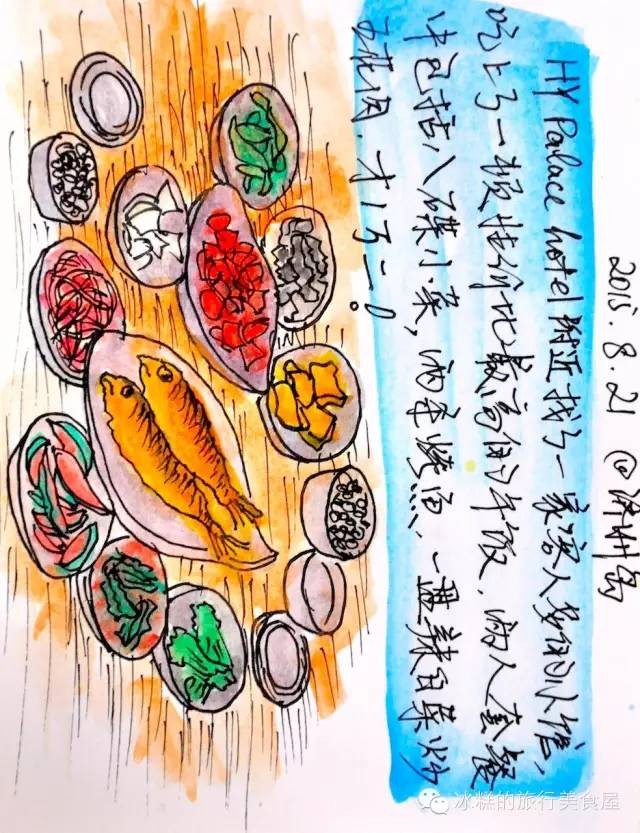 2015.8.21 @济州岛
HY Palace hotel附近找了一家客人多的小馆,
吃上了一顿性价比最高的午饭,两人套餐
中包括八碟小菜,两条烤鱼,一盘辣白菜炒
五花肉,才1万二。
冰糕的旅行美食屋